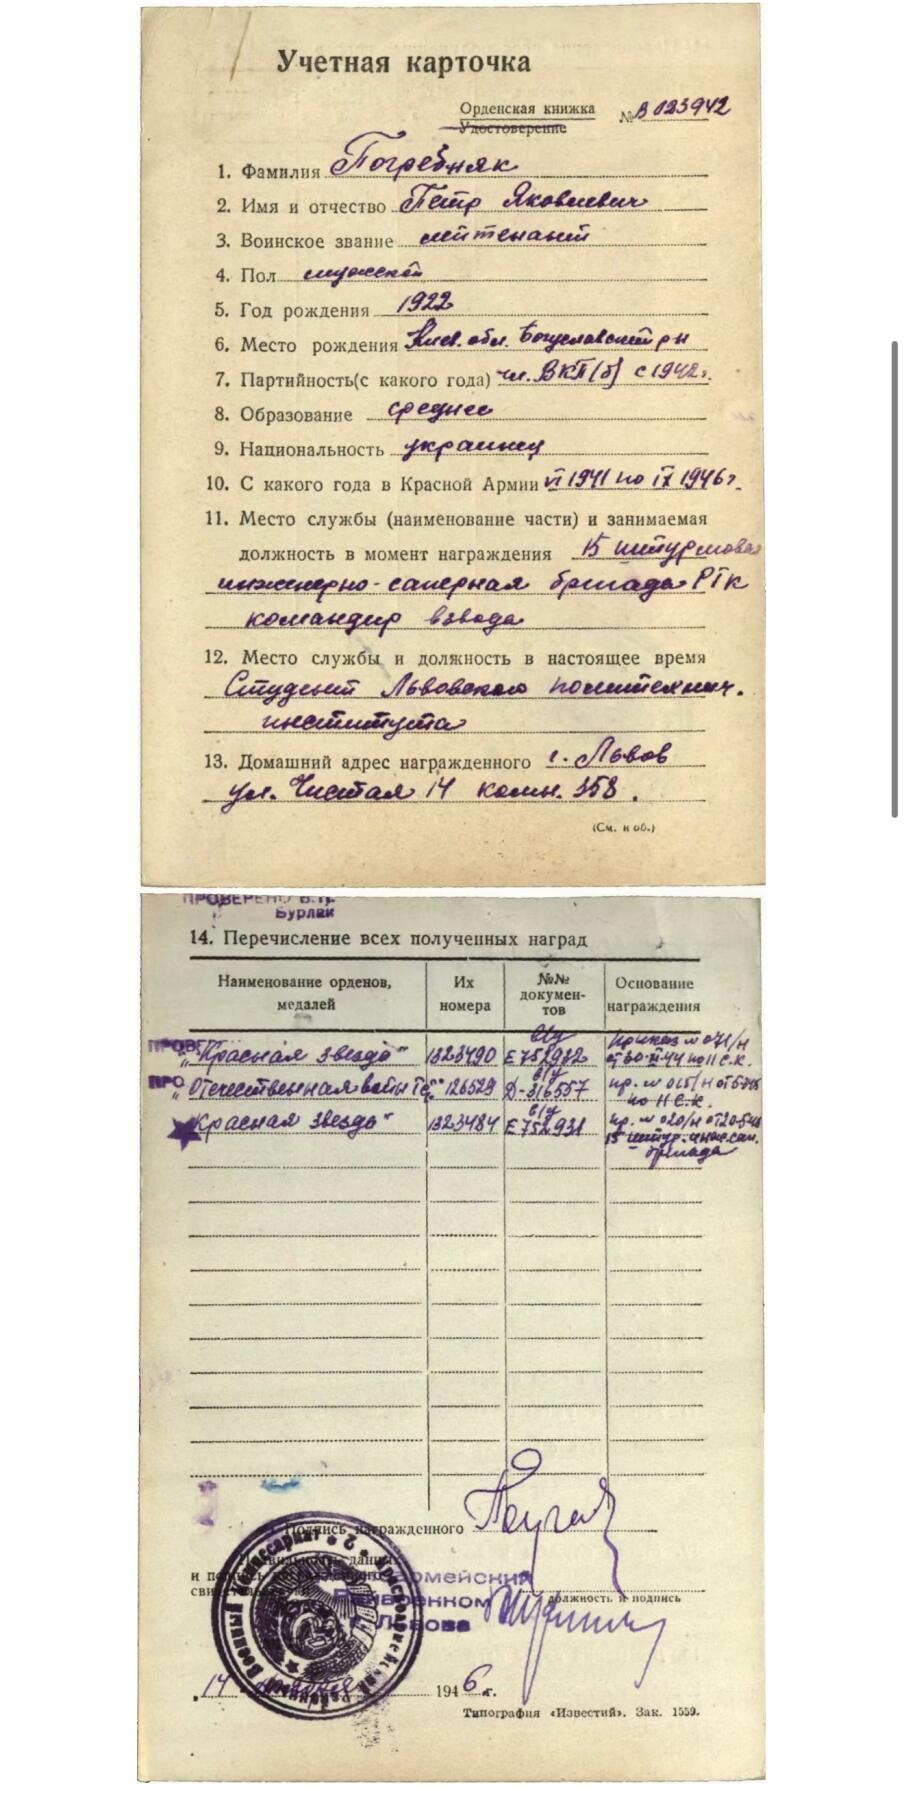 Учетная карточка
Орденская книжка
Удостоверение
№ В 023942
1. Фамилия Погребняк
2. Имя и отчество Петр Яковлевич
3. Воинское звание лейтенант
4. Пол мужской
5. Год рождения 1922
6. Место рождения Киев. обл. Богуславский р-н
7. Партийность(с какого года) чл. ВКП(б) с 1942г.
8. Образование среднее
9. Национальность украинец
10. С какого года в Красной Армии VI 1941 по IX 1946г.
11. Место службы (наименование части) и занимаемая
должность в момент награждения 15 штурмовая
инженерно-саперная бригада РГК
командир взвода
12. Место службы и должность в настоящее время
Студент Львовского политехнич.
института
13. Домашний адрес награжденного г. Львов
ул. Чистая 14 комн. 358.
(См. н об.)
ПРОВЕРЕНО
Бурлак
14. Перечисление всех полученных наград
Наименование орденов, медалей
Их номера
№№ документов
Основание награждения
"Красная звезда" 1323490 Е 752932 Приказ № 071/н
по II С.К.
"Отечественная война 1323529 Д-316557
по II С.К.
Красная звезда" 1323484 Е 752931 пр. № 020/н
15 штур. инж. сап.
бригада
Подпись награжденного
Правильность данных
и подпись награжденного
свидетельствую
должность и подпись
Красноармейский
Райвоенком
г. Львова
Военный комиссариат
14 1946 г.
Типография «Известий». Зак. 1559.